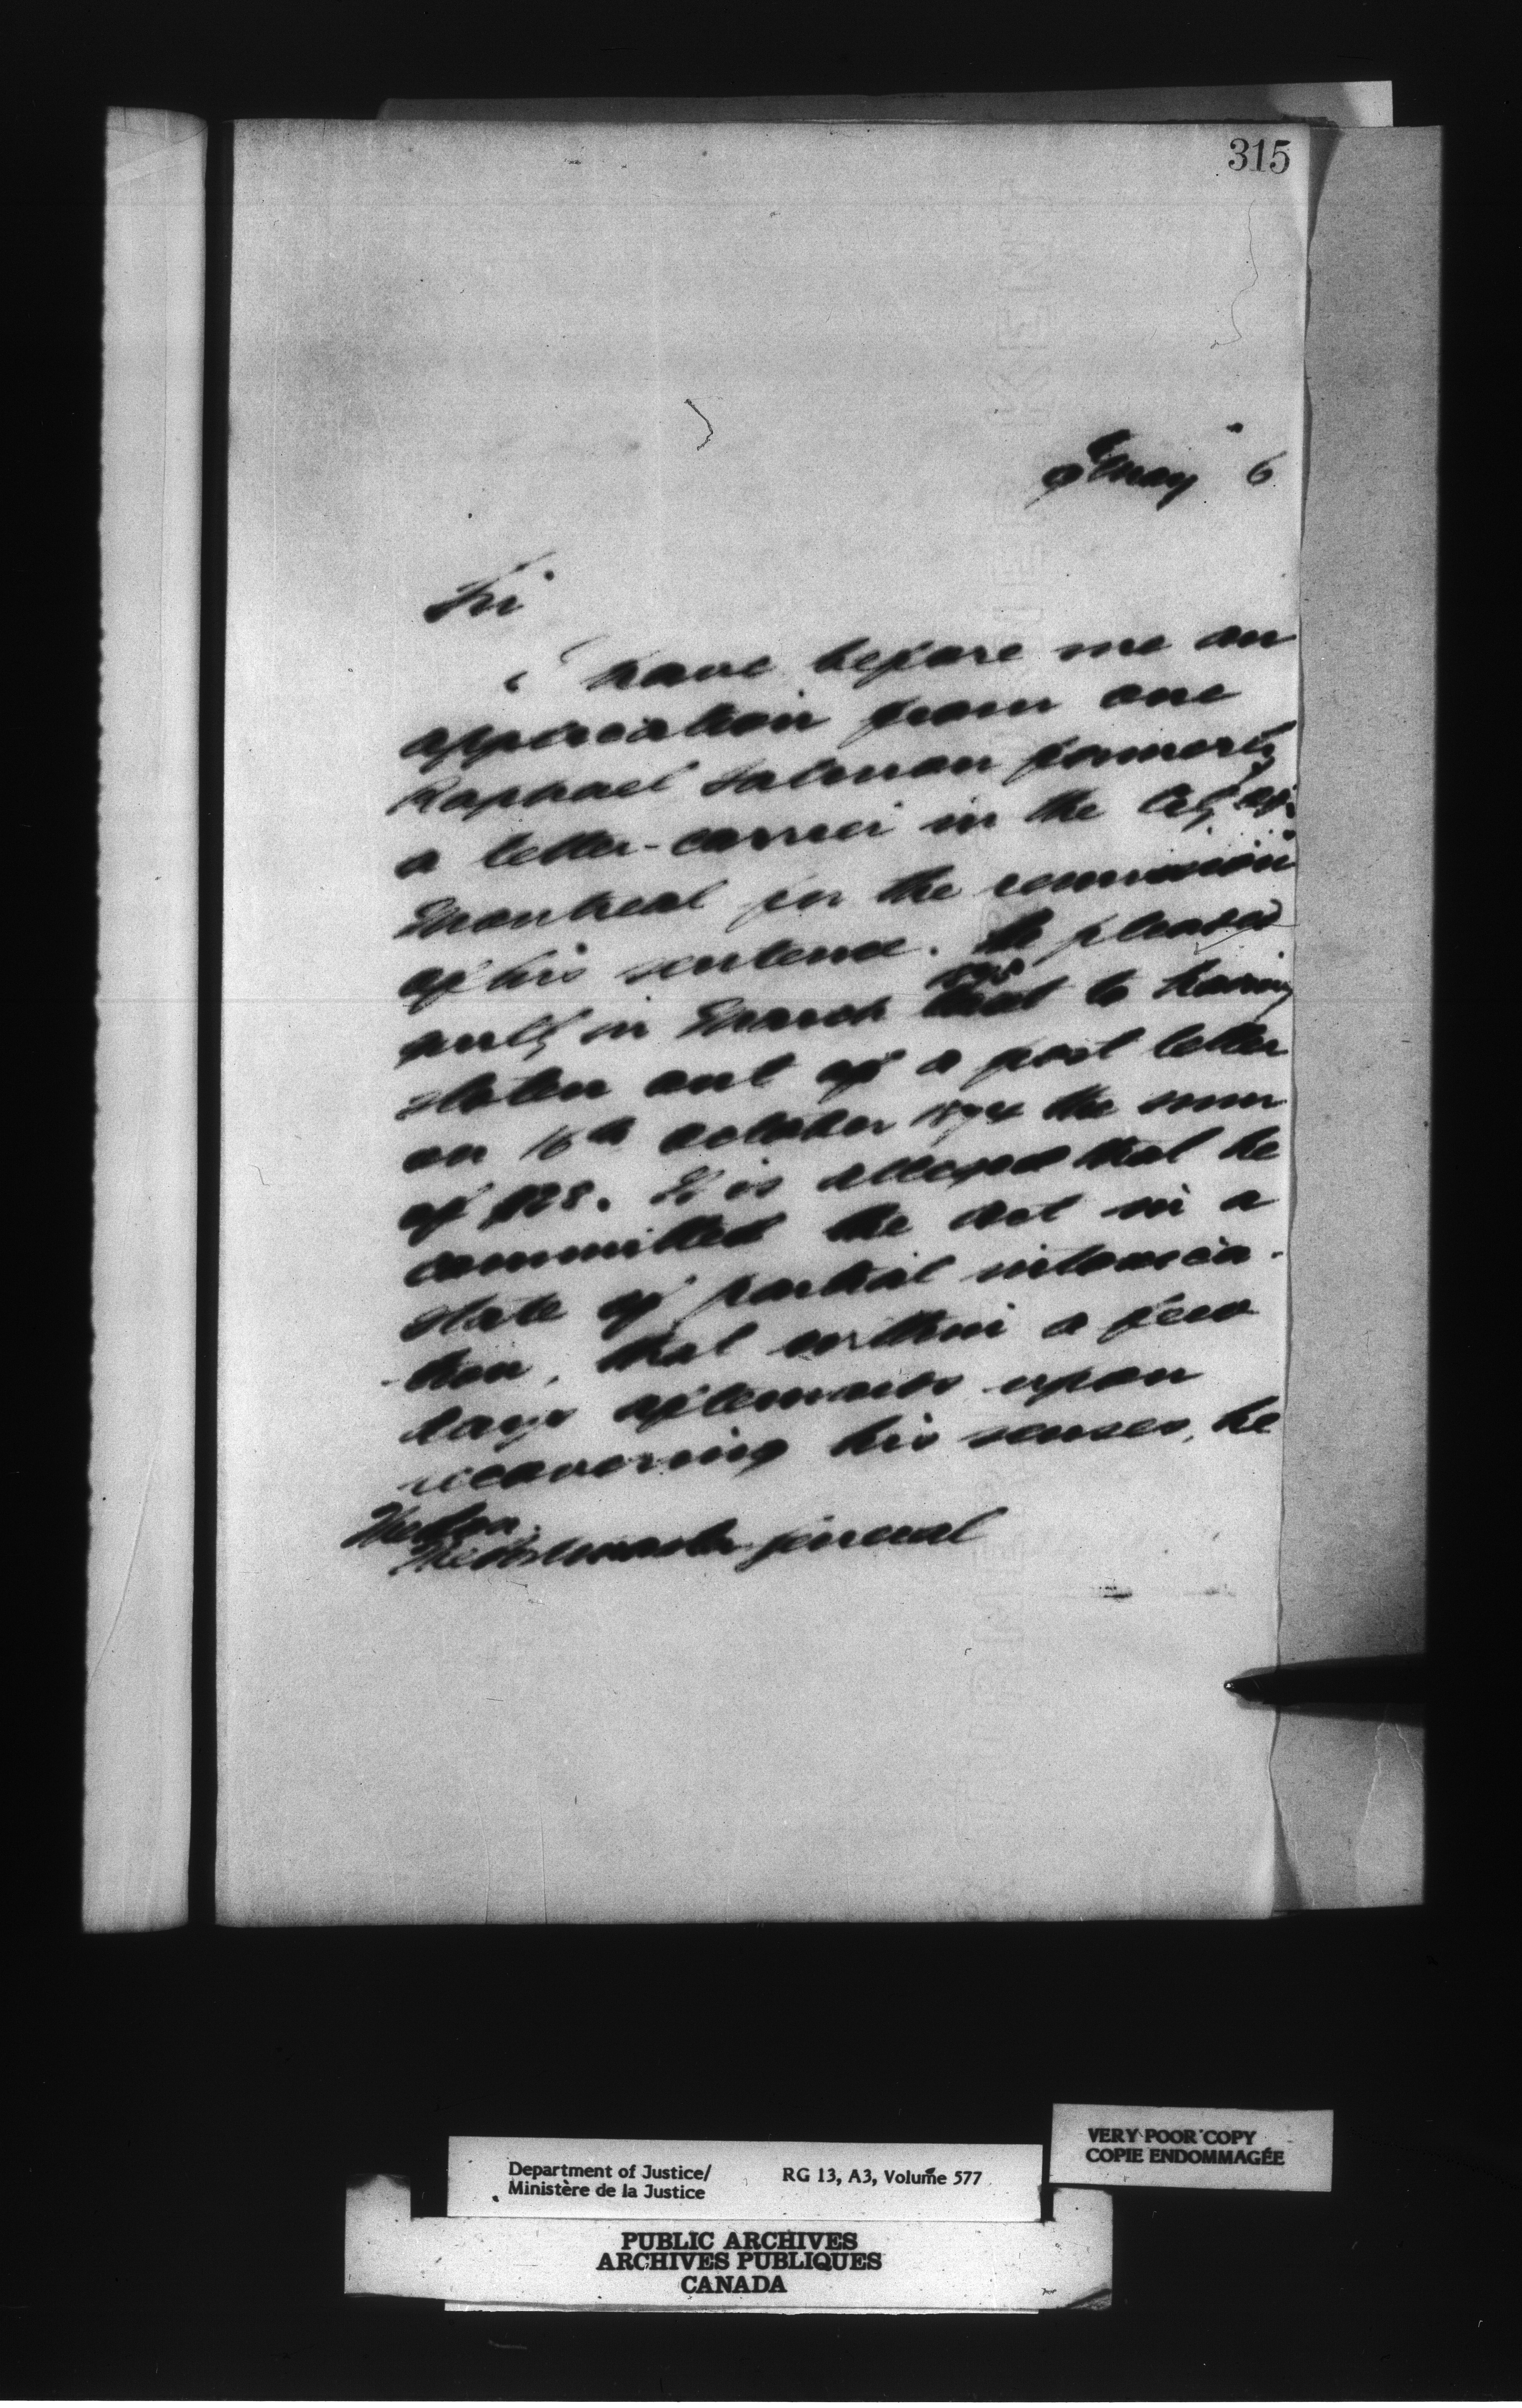 315
May 6
Sir
I have before me an
application from one
Raphael Salmon formerly
a letter-carrier in the City of
Montreal for the remission
of his sentence. He pleaded
guilty in March last to having
stolen out of a post letter
on 16th October 1874 the sum
of $28. It is alleged that he
committed the act in a
state of partial intoxica-
-tion, that within a few
days afterwards upon
recovering his senses, he
The Hon.
The Postmaster General
VERY POOR COPY
COPIE ENDOMMAGÉE
Department of Justice/ RG 13, A3, Volume 577
Ministère de la Justice
PUBLIC ARCHIVES
ARCHIVES PUBLIQUES
CANADA